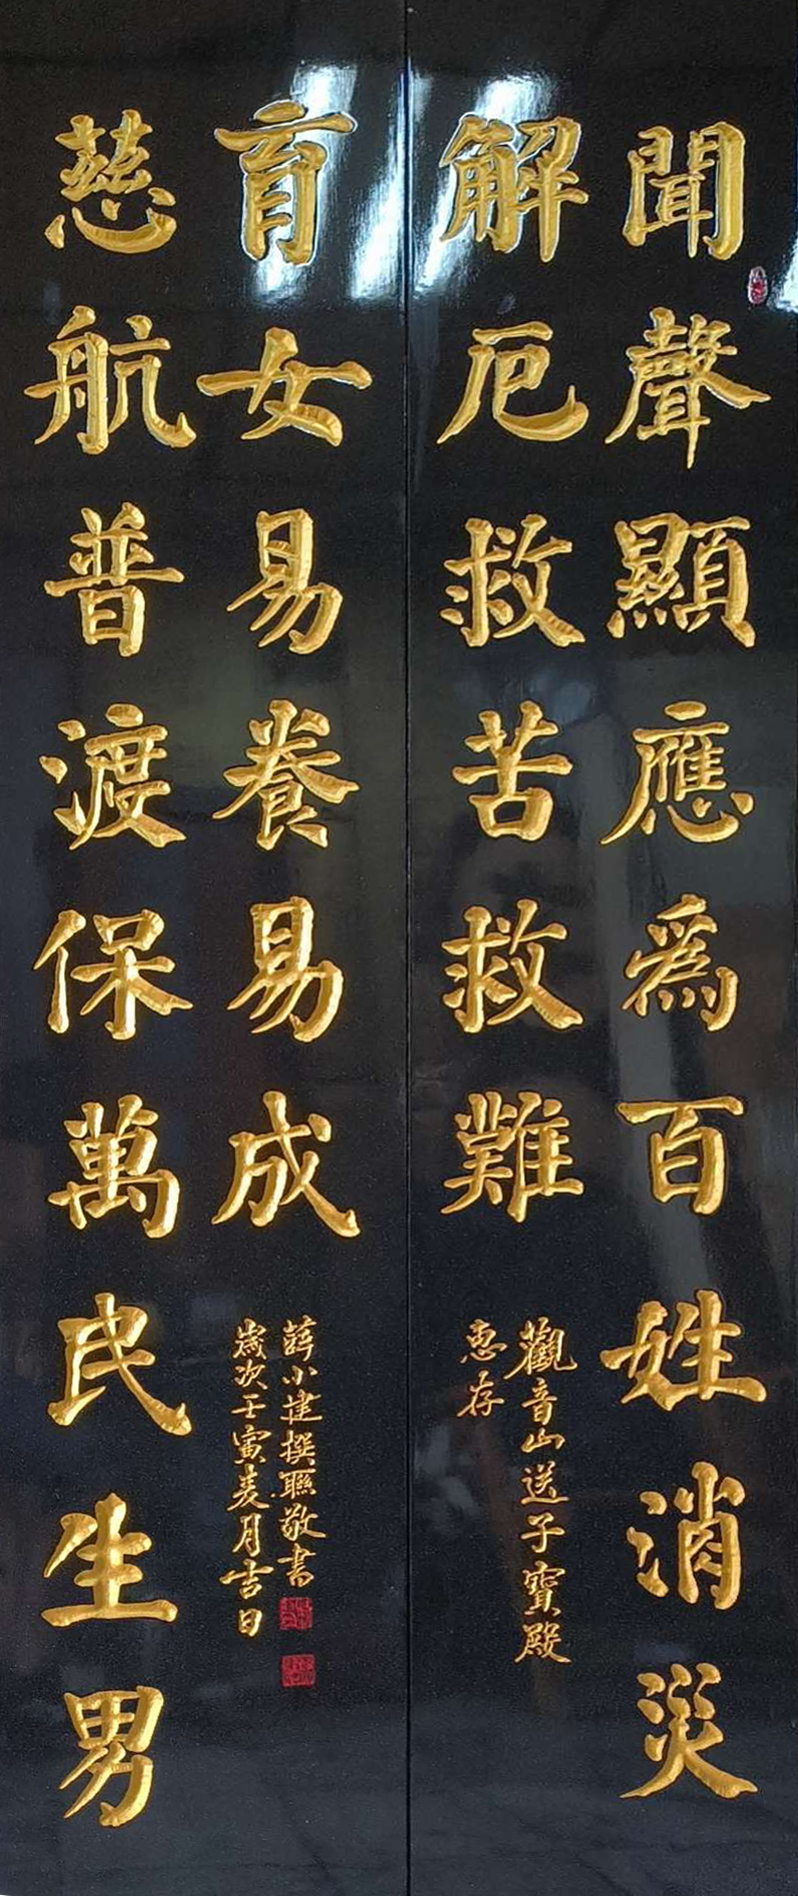 聞聲顯應爲百姓消災
解厄救苦救難
觀音山送子寶殿
惠存
慈航普渡保萬民生男
育女易養易成
薛小撰聯敬書
歲次壬寅麦月吉日